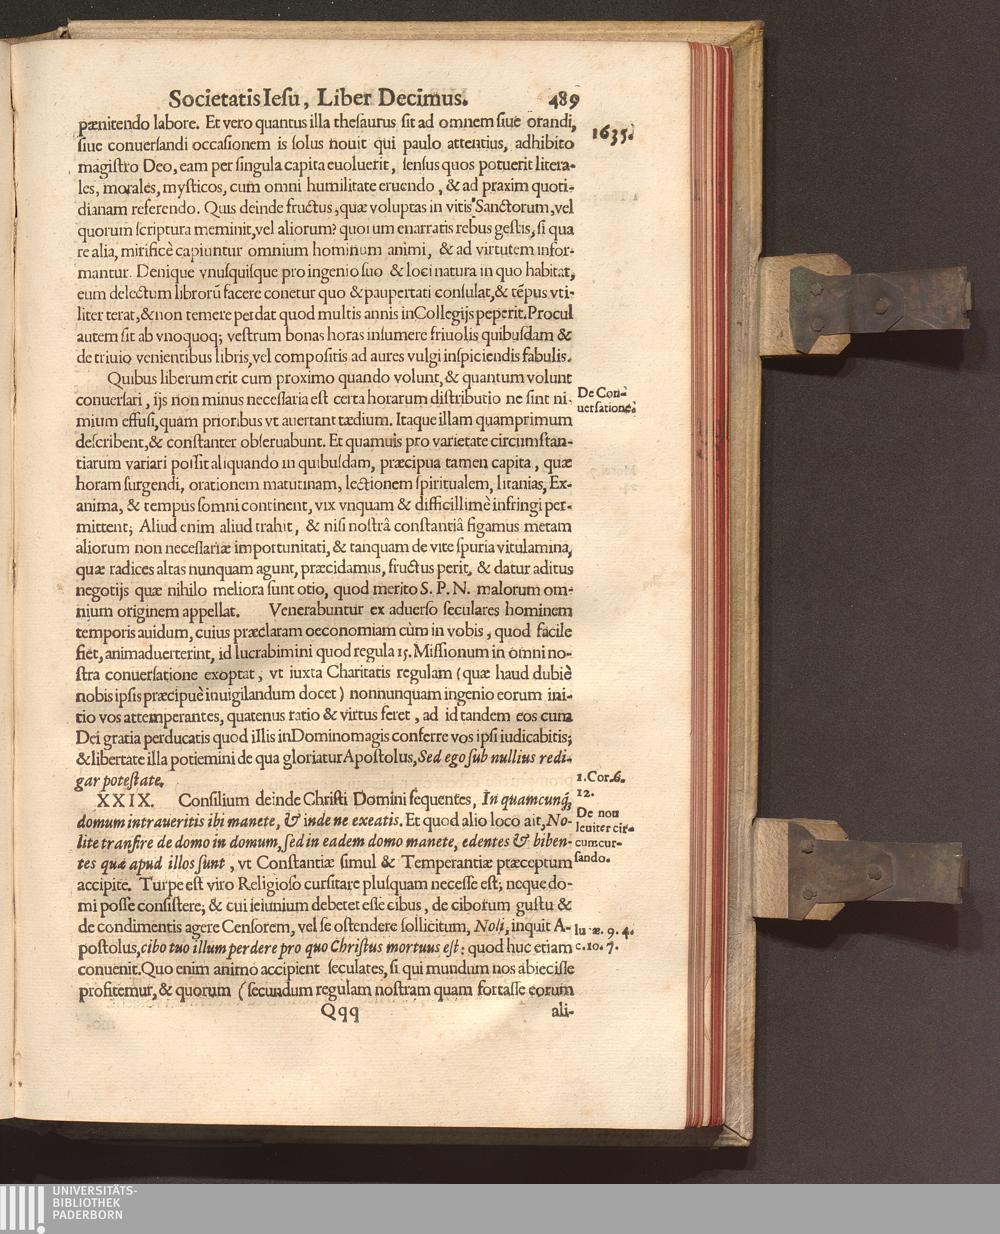 Societatis Iesu, Liber Decimus. 489
1635.
pænitendo labore. Et vero quantus illa thesaurus sit ad omnem siue orandi,
siue conuersandi occasionem is solus nouit qui paulo attentius, adhibito
magistro Deo, eam per singula capita euoluerit, sensus quos potuerit litera-
les, morales, mysticos, cum omni humilitate eruendo, & ad praxim quoti-
dianam referendo. Quis deinde fructus, quæ voluptas in vitis Sanctorum, vel
quorum scriptura meminit, vel aliorum? quorum enarratis rebus gestis, si qua
re alia, mirificè capiuntur omnium hominum animi, & ad virtutem infor-
mantur. Denique vnusquisque pro ingenio suo & loci natura in quo habitat,
eum delectum librorũ facere conetur quo & paupertati consulat, & tẽpus vti-
liter terat, & non temere perdat quod multis annis in Collegijs peperit. Procul
autem sit ab vnoquoq; vestrum bonas horas insumere friuolis quibusdam &
de triuio venientibus libris, vel compositis ad aures vulgi inspiciendis fabulis.
Quibus liberum erit cum proximo quando volunt, & quantum volunt
conuersari, ijs non minus necessaria est certa horarum distributio ne sint ni-
De Con-
uersatione.
mium effusi, quam prioribus vt auertant tædium. Itaque illam quamprimum
describent, & constanter obseruabunt. Et quamuis pro varietate circumstan-
tiarum variari possit aliquando in quibusdam, præcipua tamen capita, quæ
horam surgendi, orationem matutinam, lectionem spiritualem, litanias, Ex-
anima, & tempus somni continent, vix vnquam & difficillimè infringi per-
mittent; Aliud enim aliud trahit, & nisi nostrâ constantiâ figamus metam
aliorum non necessariæ importunitati, & tanquam de vite spuria vitulamina,
quæ radices altas nunquam agunt, præcidamus, fructus perit, & datur aditus
negotijs quæ nihilo meliora sunt otio, quod merito S. P. N. malorum om-
nium originem appellat. Venerabuntur ex aduerso seculares hominem
temporis auidum, cuius præclaram oeconomiam cùm in vobis, quod facile
fiet, animaduerterint, id lucrabimini quod regula 15. Missionum in omni no-
stra conuersatione exoptat, vt iuxta Charitatis regulam (quæ haud dubiè
nobis ipsis præcipuè inuigilandum docet) nonnunquam ingenio eorum ini-
tio vos attemperantes, quatenus ratio & virtus feret, ad id tandem eos cum
Dei gratia perducatis quod illis in Domino magis conferre vos ipsi iudicabitis;
& libertate illa potiemini de qua gloriatur Apostolus, Sed ego sub nullius redi-
gar potestate.
1. Cor. 6.
12.
XXIX. Consilium deinde Christi Domini sequentes, In quamcunq;
domum intraueritis ibi manete, & inde ne exeatis. Et quod alio loco ait, No-
lite transire de domo in domum, sed in eadem domo manete, edentes & biben-
tes quæ apud illos sunt, vt Constantiæ simul & Temperantiæ præceptum
De non
leuiter cir-
cumcur-
sando.
accipite. Turpe est viro Religioso cursitare plusquam necesse est; neque do-
mi posse consistere; & cui ieiunium deberet esse cibus, de ciborum gustu &
de condimentis agere Censorem, vel se ostendere sollicitum, Noli, inquit A-
postolus, cibo tuo illum perdere pro quo Christus mortuus est: quod huc etiam
9. 4.
c. 10. 7.
conuenit. Quo enim animo accipient seculares, si qui mundum nos abiecisse
profitemur, & quorum (secundum regulam nostram quam fortasse eorum
Qqq ali-
UNIVERSITÄTS-
BIBLIOTHEK
PADERBORN